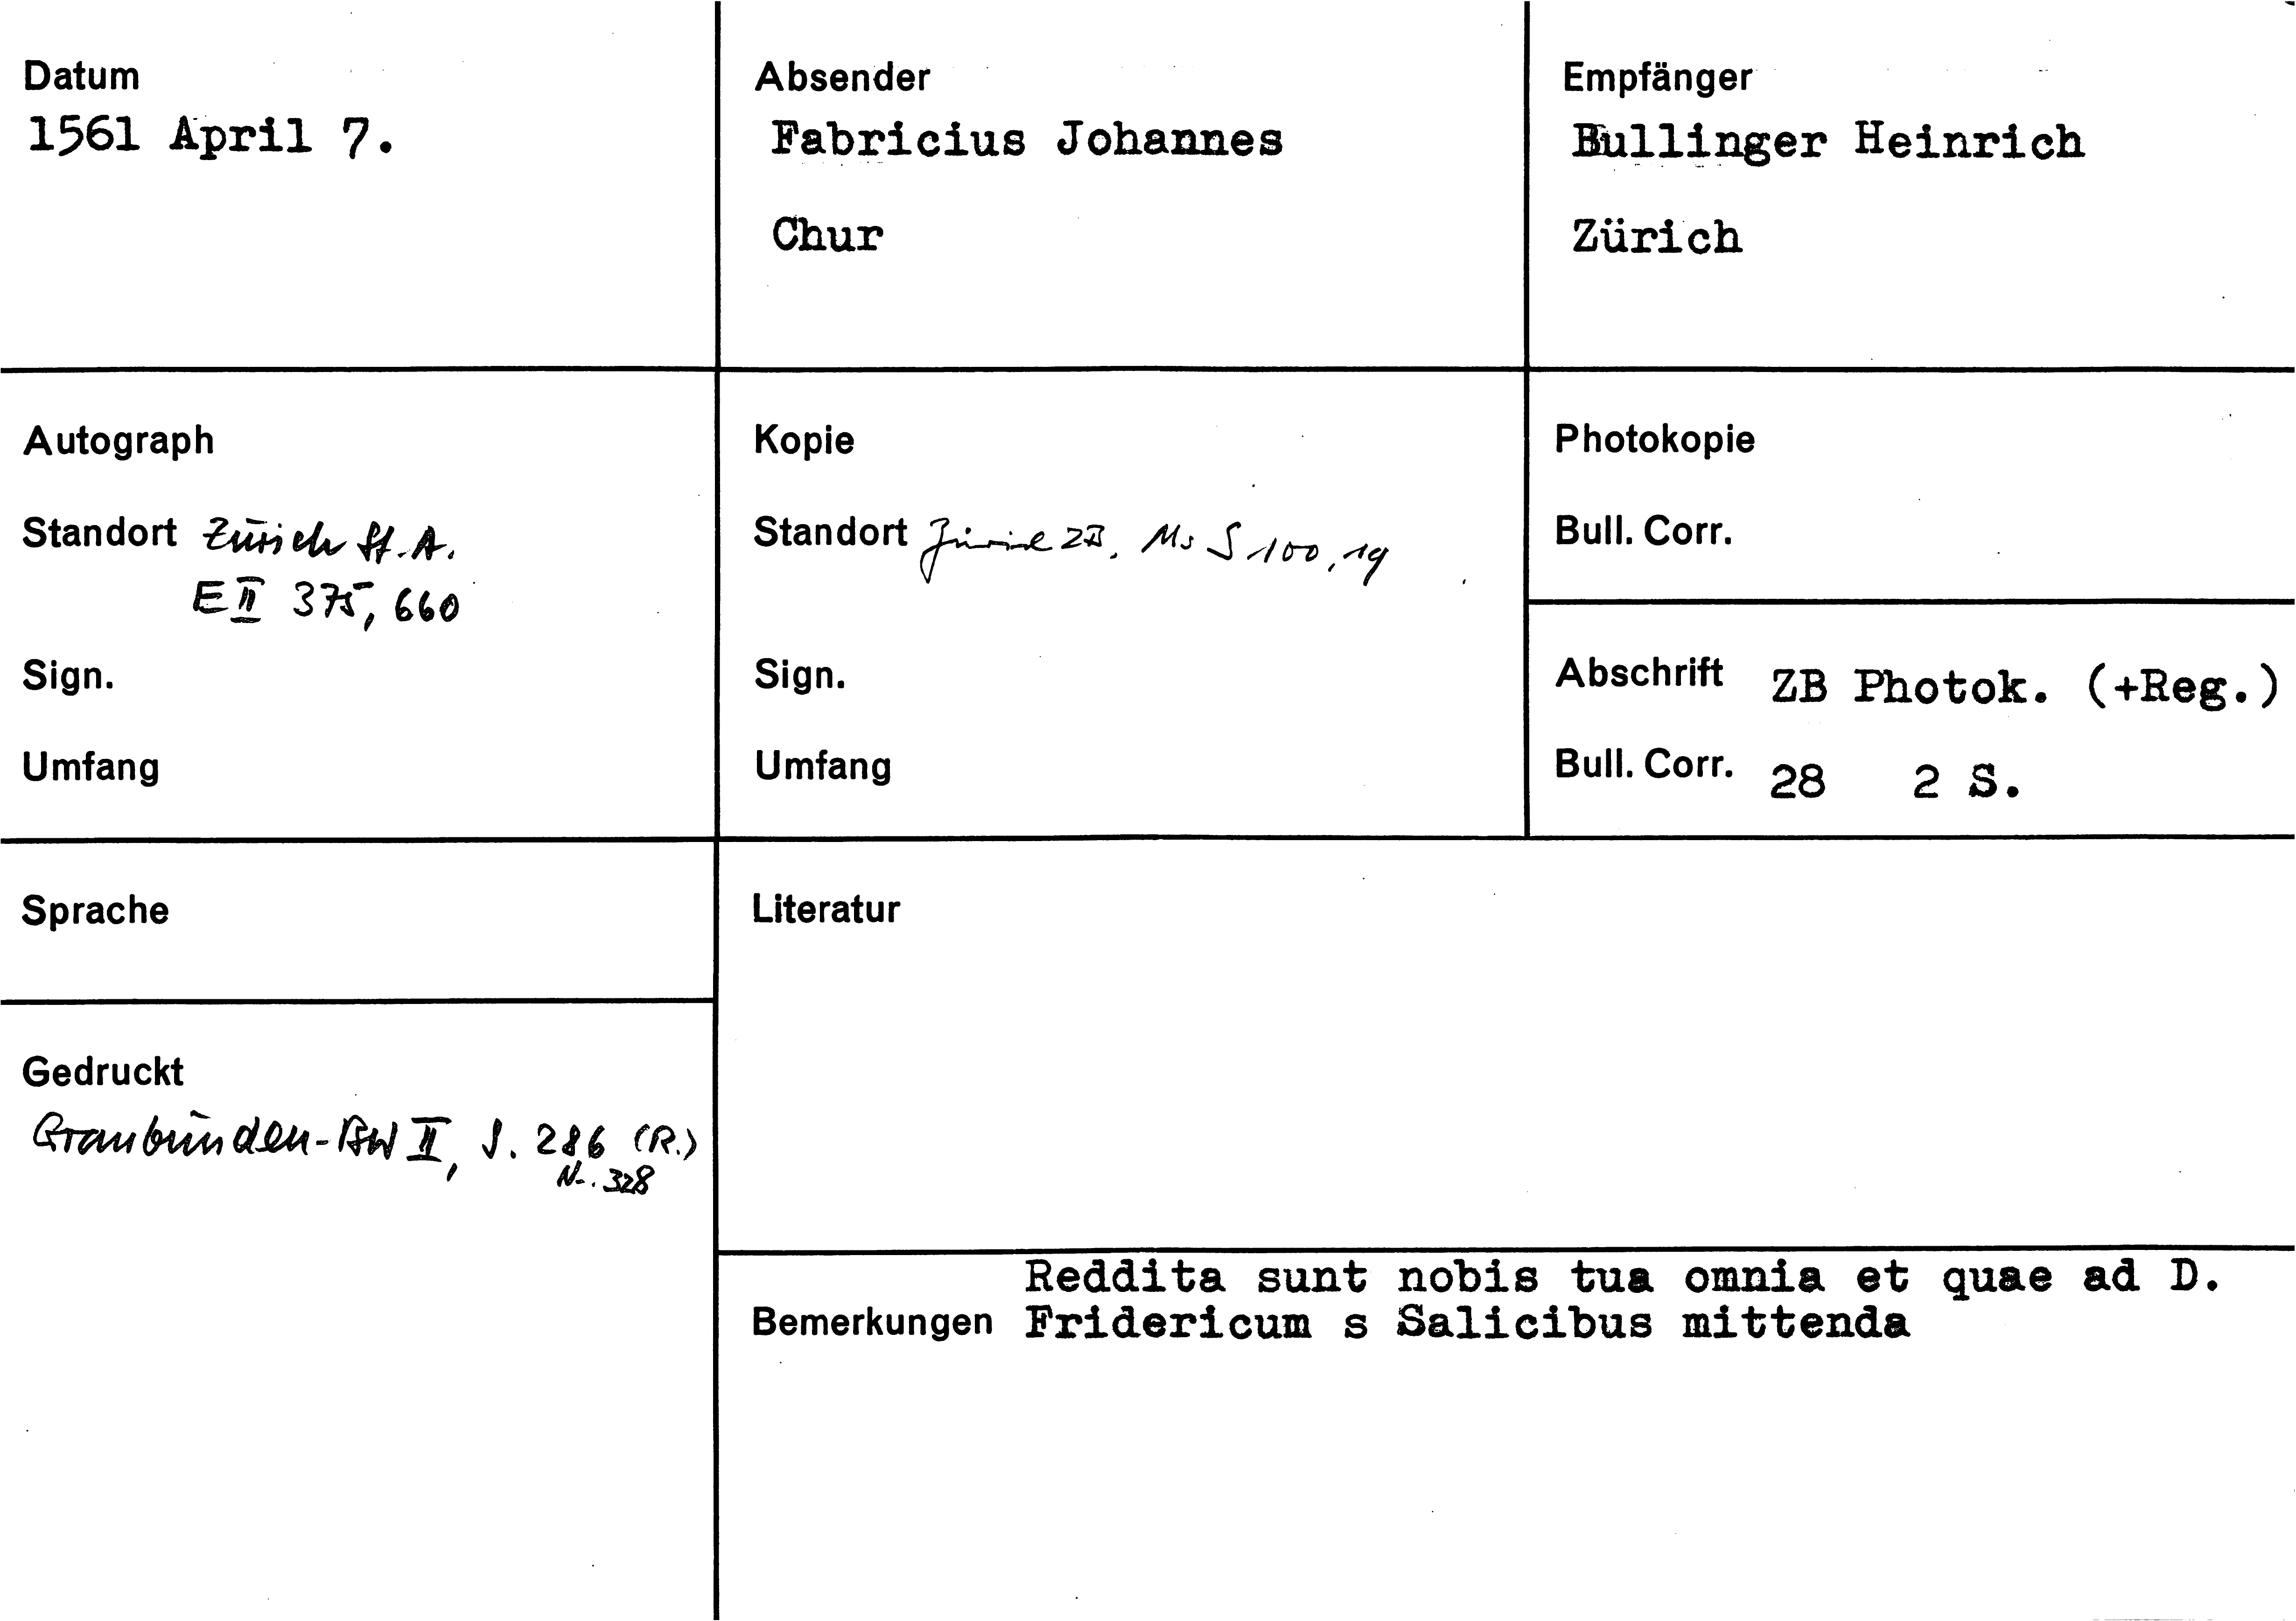 Datum
1561 April 7.
Absender
Fabricius Johannes
Chur
Empfänger
Bullinger Heinrich
Zürich
Autograph
Standort Zürich St. A.
E II 375, 660
Sign.
Umfang
Kopie
Standort Zürich ZB, Ms S 100, 19
Sign.
Umfang
Photokopie
Bull. Corr.
Abschrift ZB Photok. (+Reg.)
Bull. Corr. 28 2 S.
Sprache
Gedruckt
Graubünden-BW II, S. 286 (R.)
Nr. 328
Literatur
Reddita sunt nobis tua omnia et quae ad D.
Bemerkungen Fridericum s Salicibus mittenda